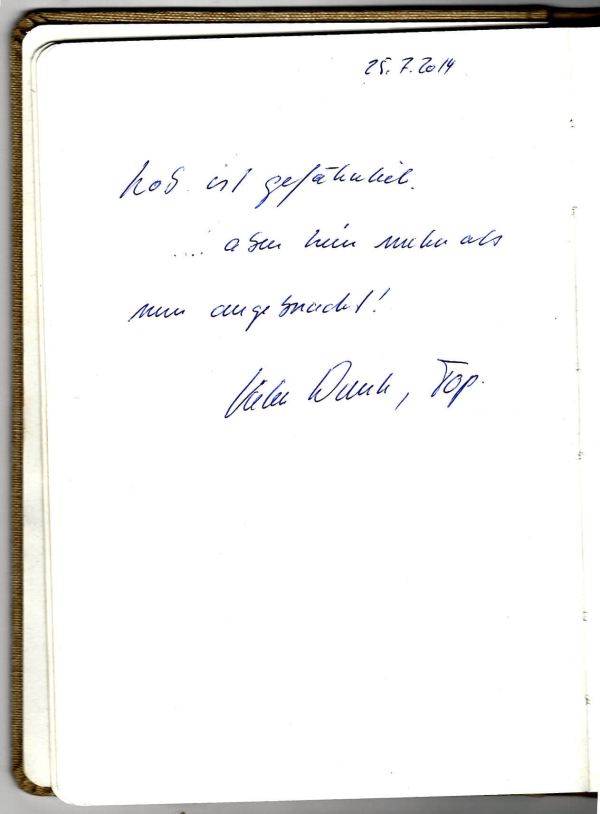 25.7.2014
Lob ist gefährlich.
.... aber hier mehr als
nur angebracht!
Vielen Dank, Top.